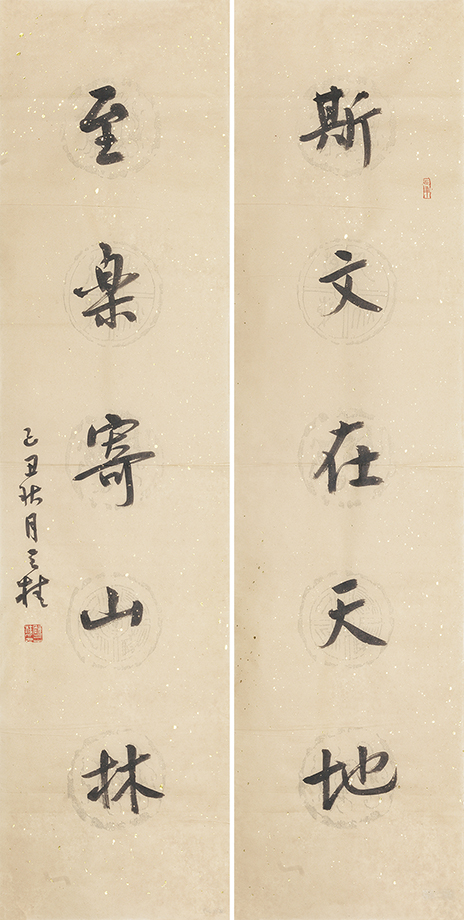 斯文在天地
至樂寄山林
己丑秋月之桂